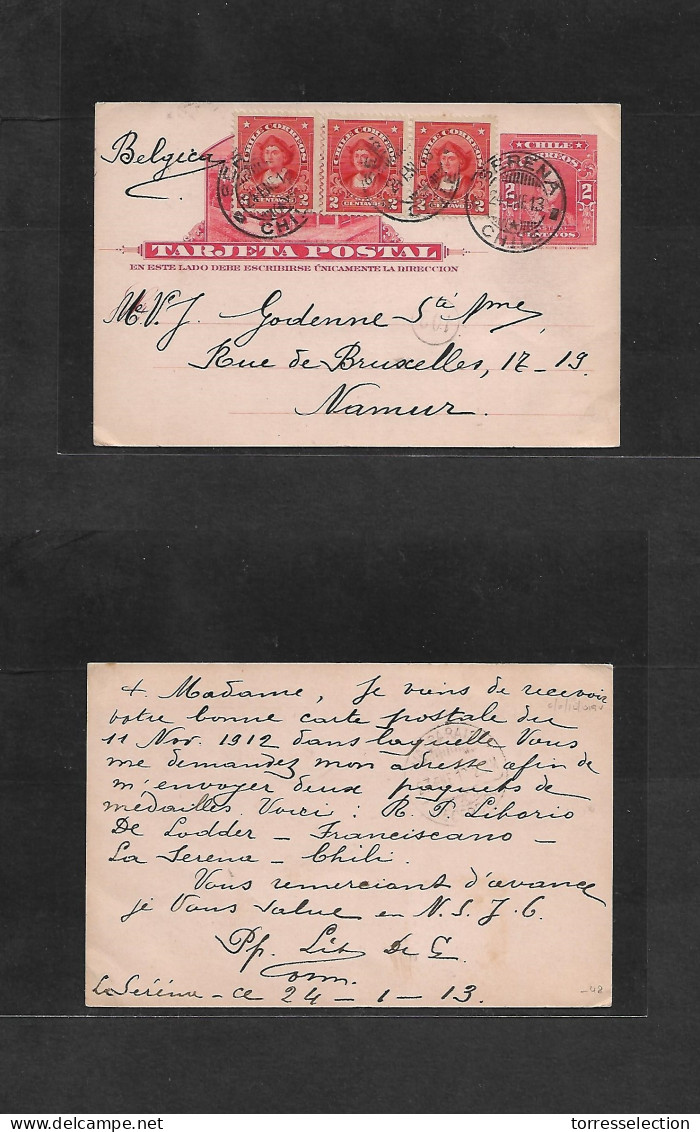 Belgica
CHILE CORREOS CHILE CORREOS CHILE CORREOS CHILE
CORREOS
2 CENTAVOS 2 2 CENTAVOS 2 2 CENTAVOS 2 2 2
CENTAVOS
SERENA
24 13
CHILE
TARJETA POSTAL
EN ESTE LADO DEBE ESCRIBIRSE ÚNICAMENTE LA DIRECCION
V. J. Godenne
Rue de Bruxelles, 17-19
Namur.
+. Madame, Je viens de recevoir
votre bonne carte postale du
11 Nov. 1912 dans laquelle Vous
me demandez mon adresse afin de
m'envoyer deux paquets de
medailles. Voici: R. P. Liborio
De Lodder - Franciscano -
La Serena - Chili.
Vous remerciant d'avance
je Vous salue en N. S. J. C.
Lib De
La Séréna - ce 24 - 1 - 13.
torresselection